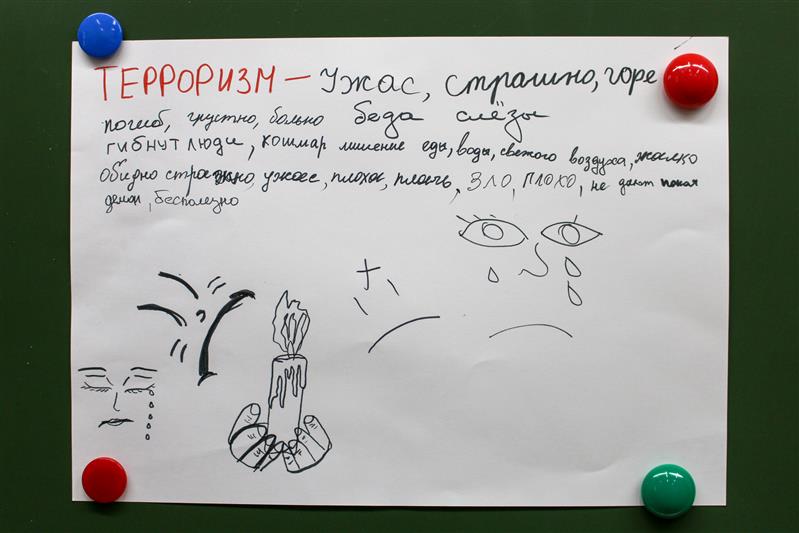 ТЕРРОРИЗМ — Ужас, страшно, горе
погиб, грустно, больно беда слёзы
гибнут люди, кошмар лишение еды, воды, свежого воздуха, жалко
обидно страшно, ужас, плохое, плачь, ЗЛО, ПЛОХО, не дают покоя
демон, бесполезно